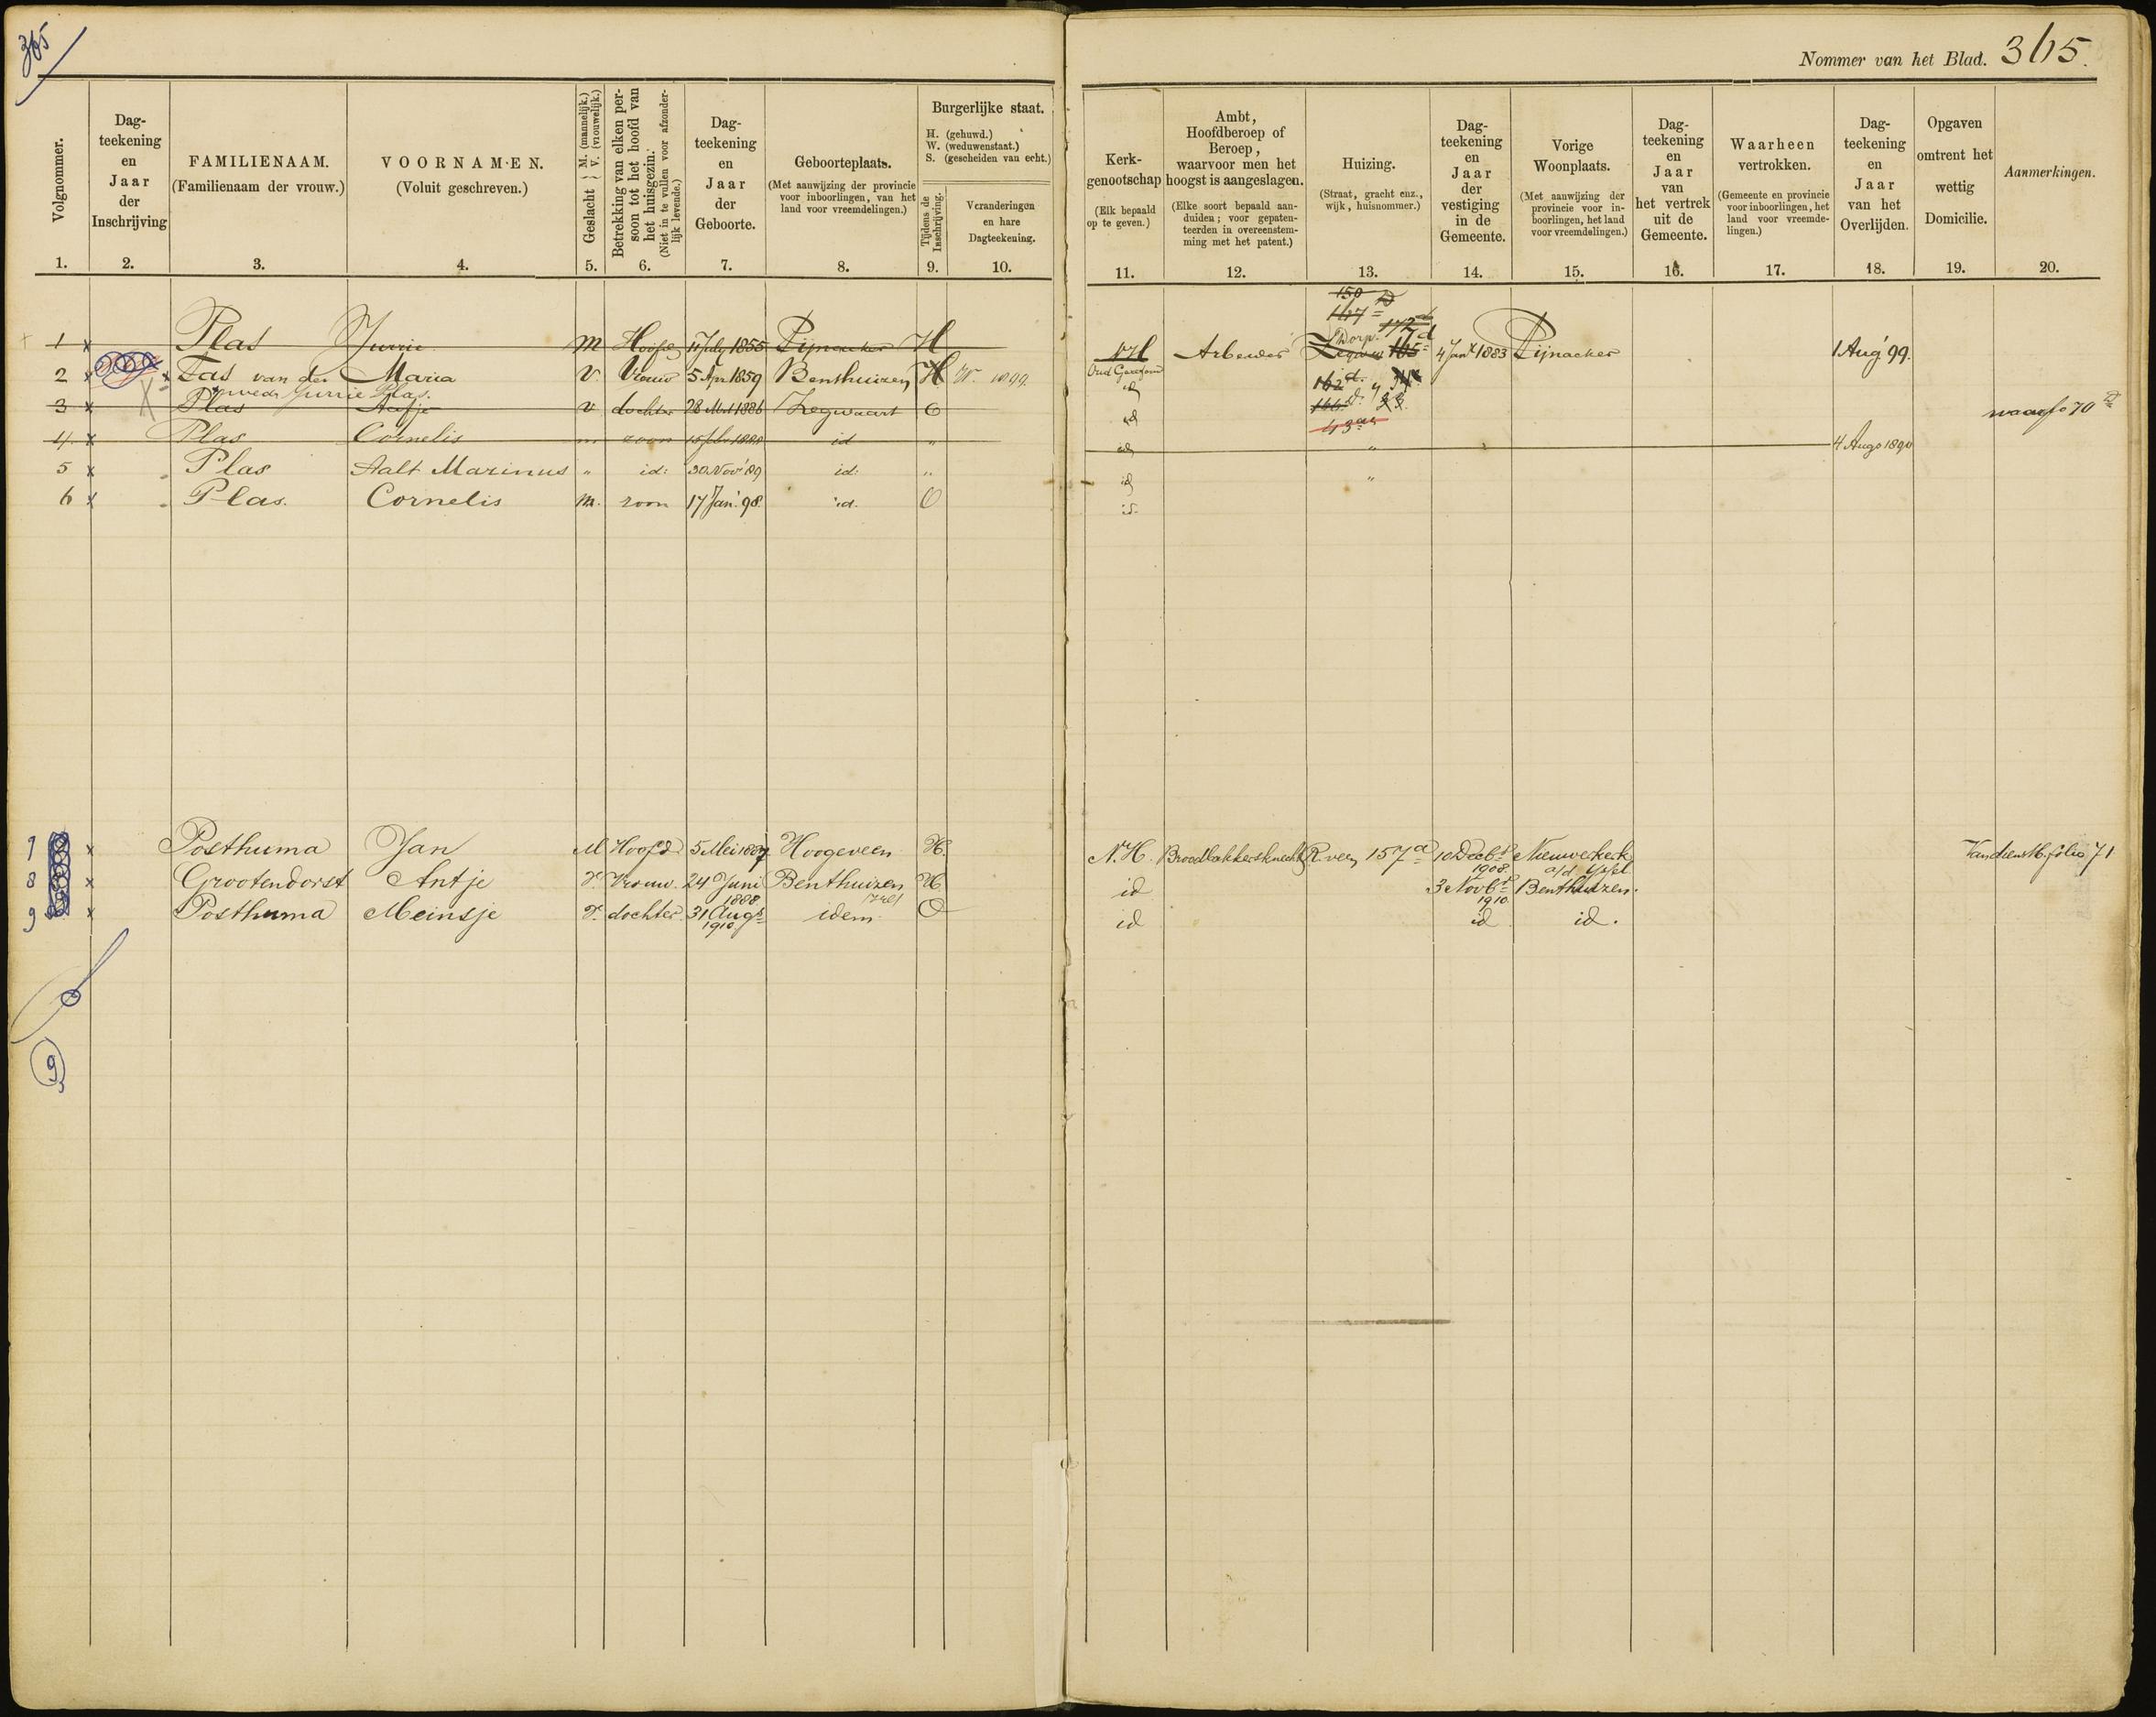 365
Nommer van het Blad. 365.
Volgnommer.
1.
Dag-
teekening
en
Jaar
der
Inschrijving
2.
FAMILIENAAM.
(Familienaam der vrouw.)
3.
VOORNAMEN.
(Voluit geschreven.)
4.
Geslacht { M. (mannelijk.) V. (vrouwelijk.)
5.
Betrekking van elken per-
soon tot het hoofd van
het huisgezin.
(Niet in te vullen voor afzonder-
lijk levende.)
6.
Dag-
teekening
en
Jaar
der
Geboorte.
7.
Geboorteplaats.
(Met aanwijzing der provincie
voor inboorlingen, van het
land voor vreemdelingen.)
8.
Burgerlijke staat.
H. (gehuwd.)
W. (weduwenstaat.)
S. (gescheiden van echt.)
Tijdens de
Inschrijving.
9.
Veranderingen
en hare
Dagteekening.
10.
Kerk-
genootschap
(Elk bepaald
op te geven.)
11.
Ambt,
Hoofdberoep of
Beroep,
waarvoor men het
hoogst is aangeslagen.
(Elke soort bepaald aan-
duiden; voor gepaten-
teerden in overeenstem-
ming met het patent.)
12.
Huizing.
(Straat, gracht enz.,
wijk, huisnommer.)
13.
Dag-
teekening
en
Jaar
der
vestiging
in de
Gemeente.
14.
Vorige
Woonplaats.
(Met aanwijzing der
provincie voor in-
boorlingen, het land
voor vreemdelingen.)
15.
Dag-
teekening
en
Jaar
van
het vertrek
uit de
Gemeente.
16.
Waarheen
vertrokken.
(Gemeente en provincie
voor inboorlingen, het
land voor vreemde-
lingen.)
17.
Dag-
teekening
en
Jaar
van het
Overlijden.
18.
Opgaven
omtrent het
wettig
Domicilie.
19.
Aanmerkingen.
20.
150 D
1 x Plas Jurrie m Hoofd 11 July 1855 Pijnacker H NH Arbeider Dorp. 7d 4 Jan 1883 Pijnacker 1 Aug 99.
2 x Tas van der Maria v. Vrouw 5 Apr 1859 Benthuizen H W. 1899 Oud Gereform id 162
wed: Jurrie Plas.
3 x Plas Aafje v dochter 28 1886 Zegwaart O id 166 43 naar fo 70
4. x Plas Cornelis m zoon 1888 id " id " 4 Augs 1890
5 x Plas Aalt Marinus " id: 30 Nov 89 id: " id "
6 x Plas. Cornelis m. zoon 17 Jan. 98. id. O id.
7 x Posthuma Jan M Hoofd 5 Mei 1887 Hoogeveen H. N.H. Broodbakkersknecht R.veen 157a 10 Decbr 1908. Nieuwerkerk a/d Yssel Van dienstb. folio 71
8 x Grootendorst Antje V. Vrouw. 24 Juni 1888. Benthuizen H id 3 Novbr 1910. Benthuizen.
9 x Posthuma Meinsje V. dochter 31 Augs 1910. idem O id id id.
9